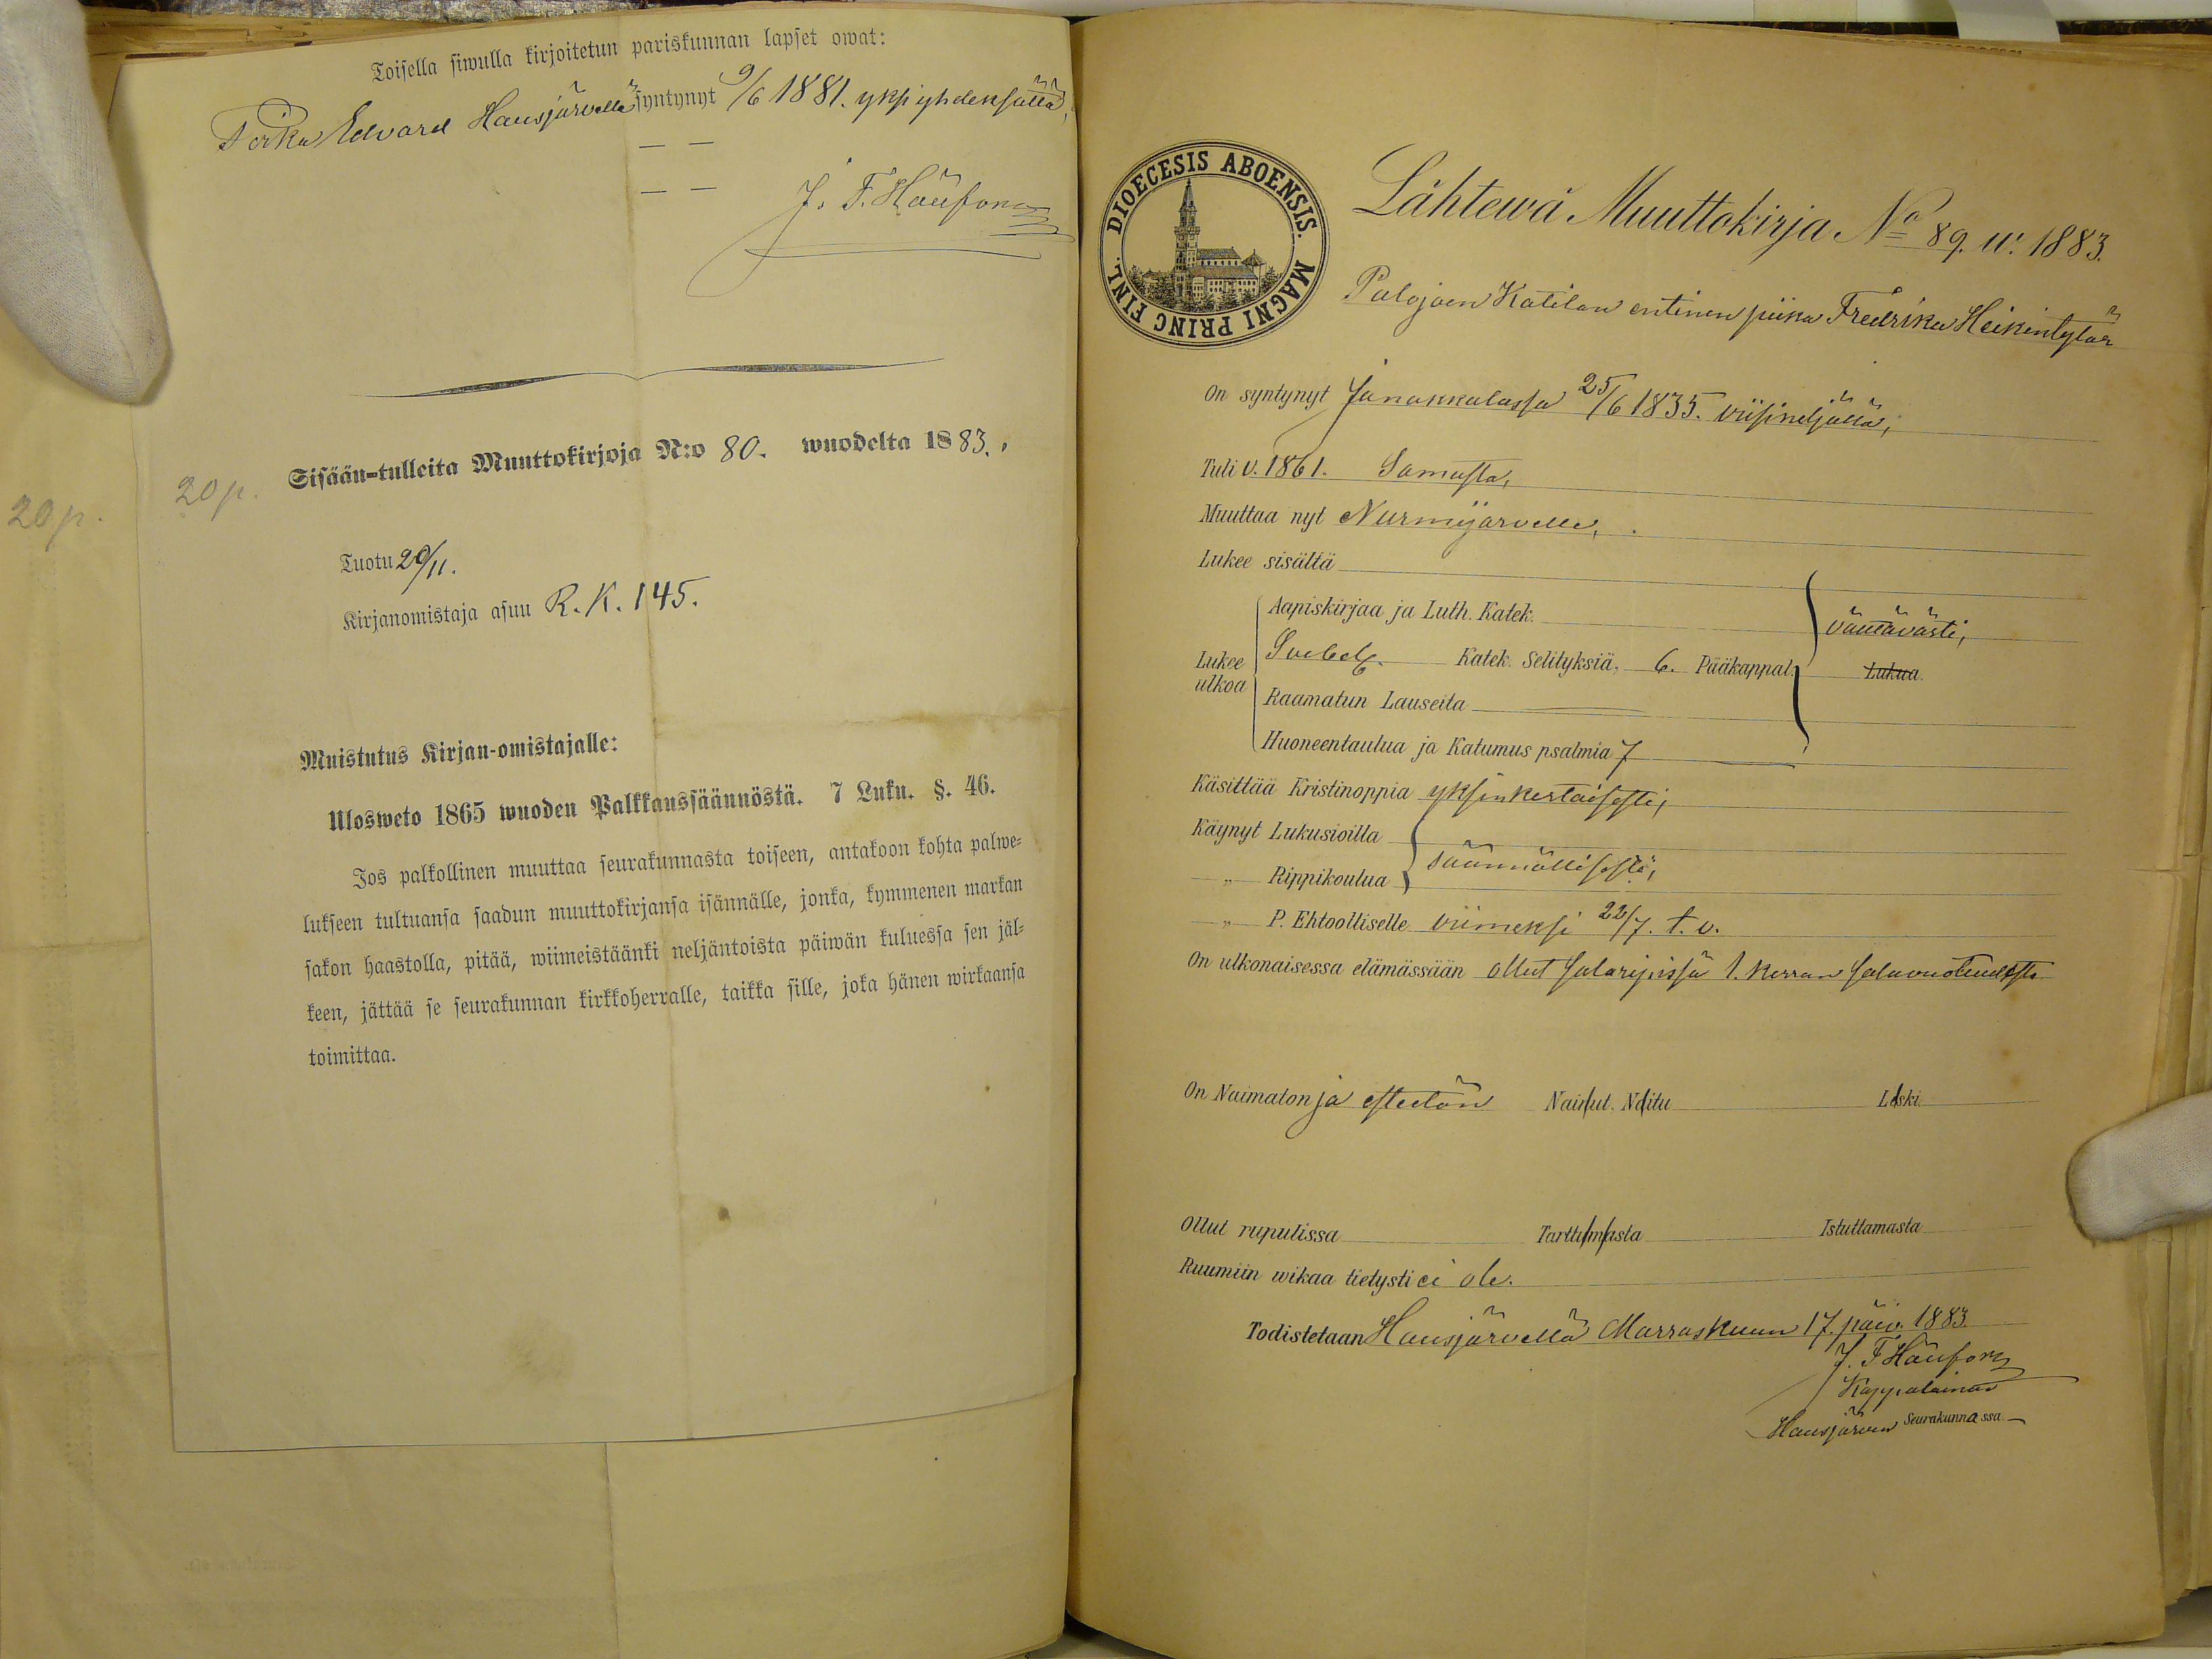 Toisella siwulla kirjoitetun pariskunnan lapset owat:
Edvard Hausjärvellä syntynyt 9/6 1881. yksiyhdeksättä,
— —
— —
J. F.
20 p.
20 p.
Sisään-tulleita Muuttokirjoja N:o 80. wuodelta 1883.
Tuotu 29/11.
Kirjanomistaja asuu R. K. 145.
Muistutus Kirjan-omistajalle:
Ulosweto 1865 wuoden Palkkaussäännöstä. 7 Luku. §. 46.
Jos palkollinen muuttaa seurakunnasta toiseen, antakoon kohta palwe-
lukseen tultuansa saadun muuttokirjansa isännälle, jonka, kymmenen markan
sakon haastolla, pitää, wiimeistäänki neljäntoista päiwän kuluessa sen jäl-
keen, jättää se seurakunnan kirkkoherralle, taikka sille, joka hänen wirkaansa
toimittaa.
DIOECESIS ABOENSIS. MAGNI PRINC FINL.
Lähtewä Muuttokirja No 89. w. 1883.
Palojoen Katilan entinen piika Fredrika Heikintytär
On syntynyt Janakkalassa 25/6 1835. viisineljättä,
Tuli v. 1861. Samasta,
Muuttaa nyt Nurmijärvelle,
Lukee sisältä
Aapiskirjaa ja Luth. Katek. välttävästi,
Lukee ulkoa Svebel. Katek. Selityksiä, 6. Pääkappal. Lukua.
Raamatun Lauseita
Huoneentaulua ja Katumus psalmia 7
Käsittää Kristinoppia yksinkertaisesti,
Käynyt Lukusioilla
„ Rippikoulua säännöllisesti,
„ P. Ehtoolliselle viimeksi 22/7. t. v.
On ulkonaisessa elämässään ollut salaripissä 1. kerran salavuoteudesta
On Naimaton ja esteetön Nainut. Naitu Leski
Ollut rupulissa Tarttumasta Istuttamasta
Ruumiin wikaa tietysti ei ole.
Todistetaan Hausjärvellä Marraskuun 17. päiv. 1883.
J. F.
Kappalainen
Hausjärven Seurakunnassa